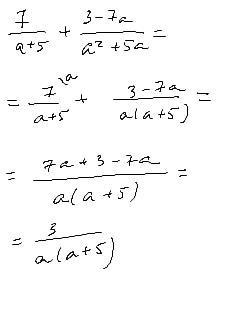 7/(a+5) + (3-7a)/(a² +5a) =
= 7^(\a)/(a+5) + (3-7a)/(a(a+5)) =
= (7a+3-7a)/(a(a+5)) =
= 3/(a(a+5))